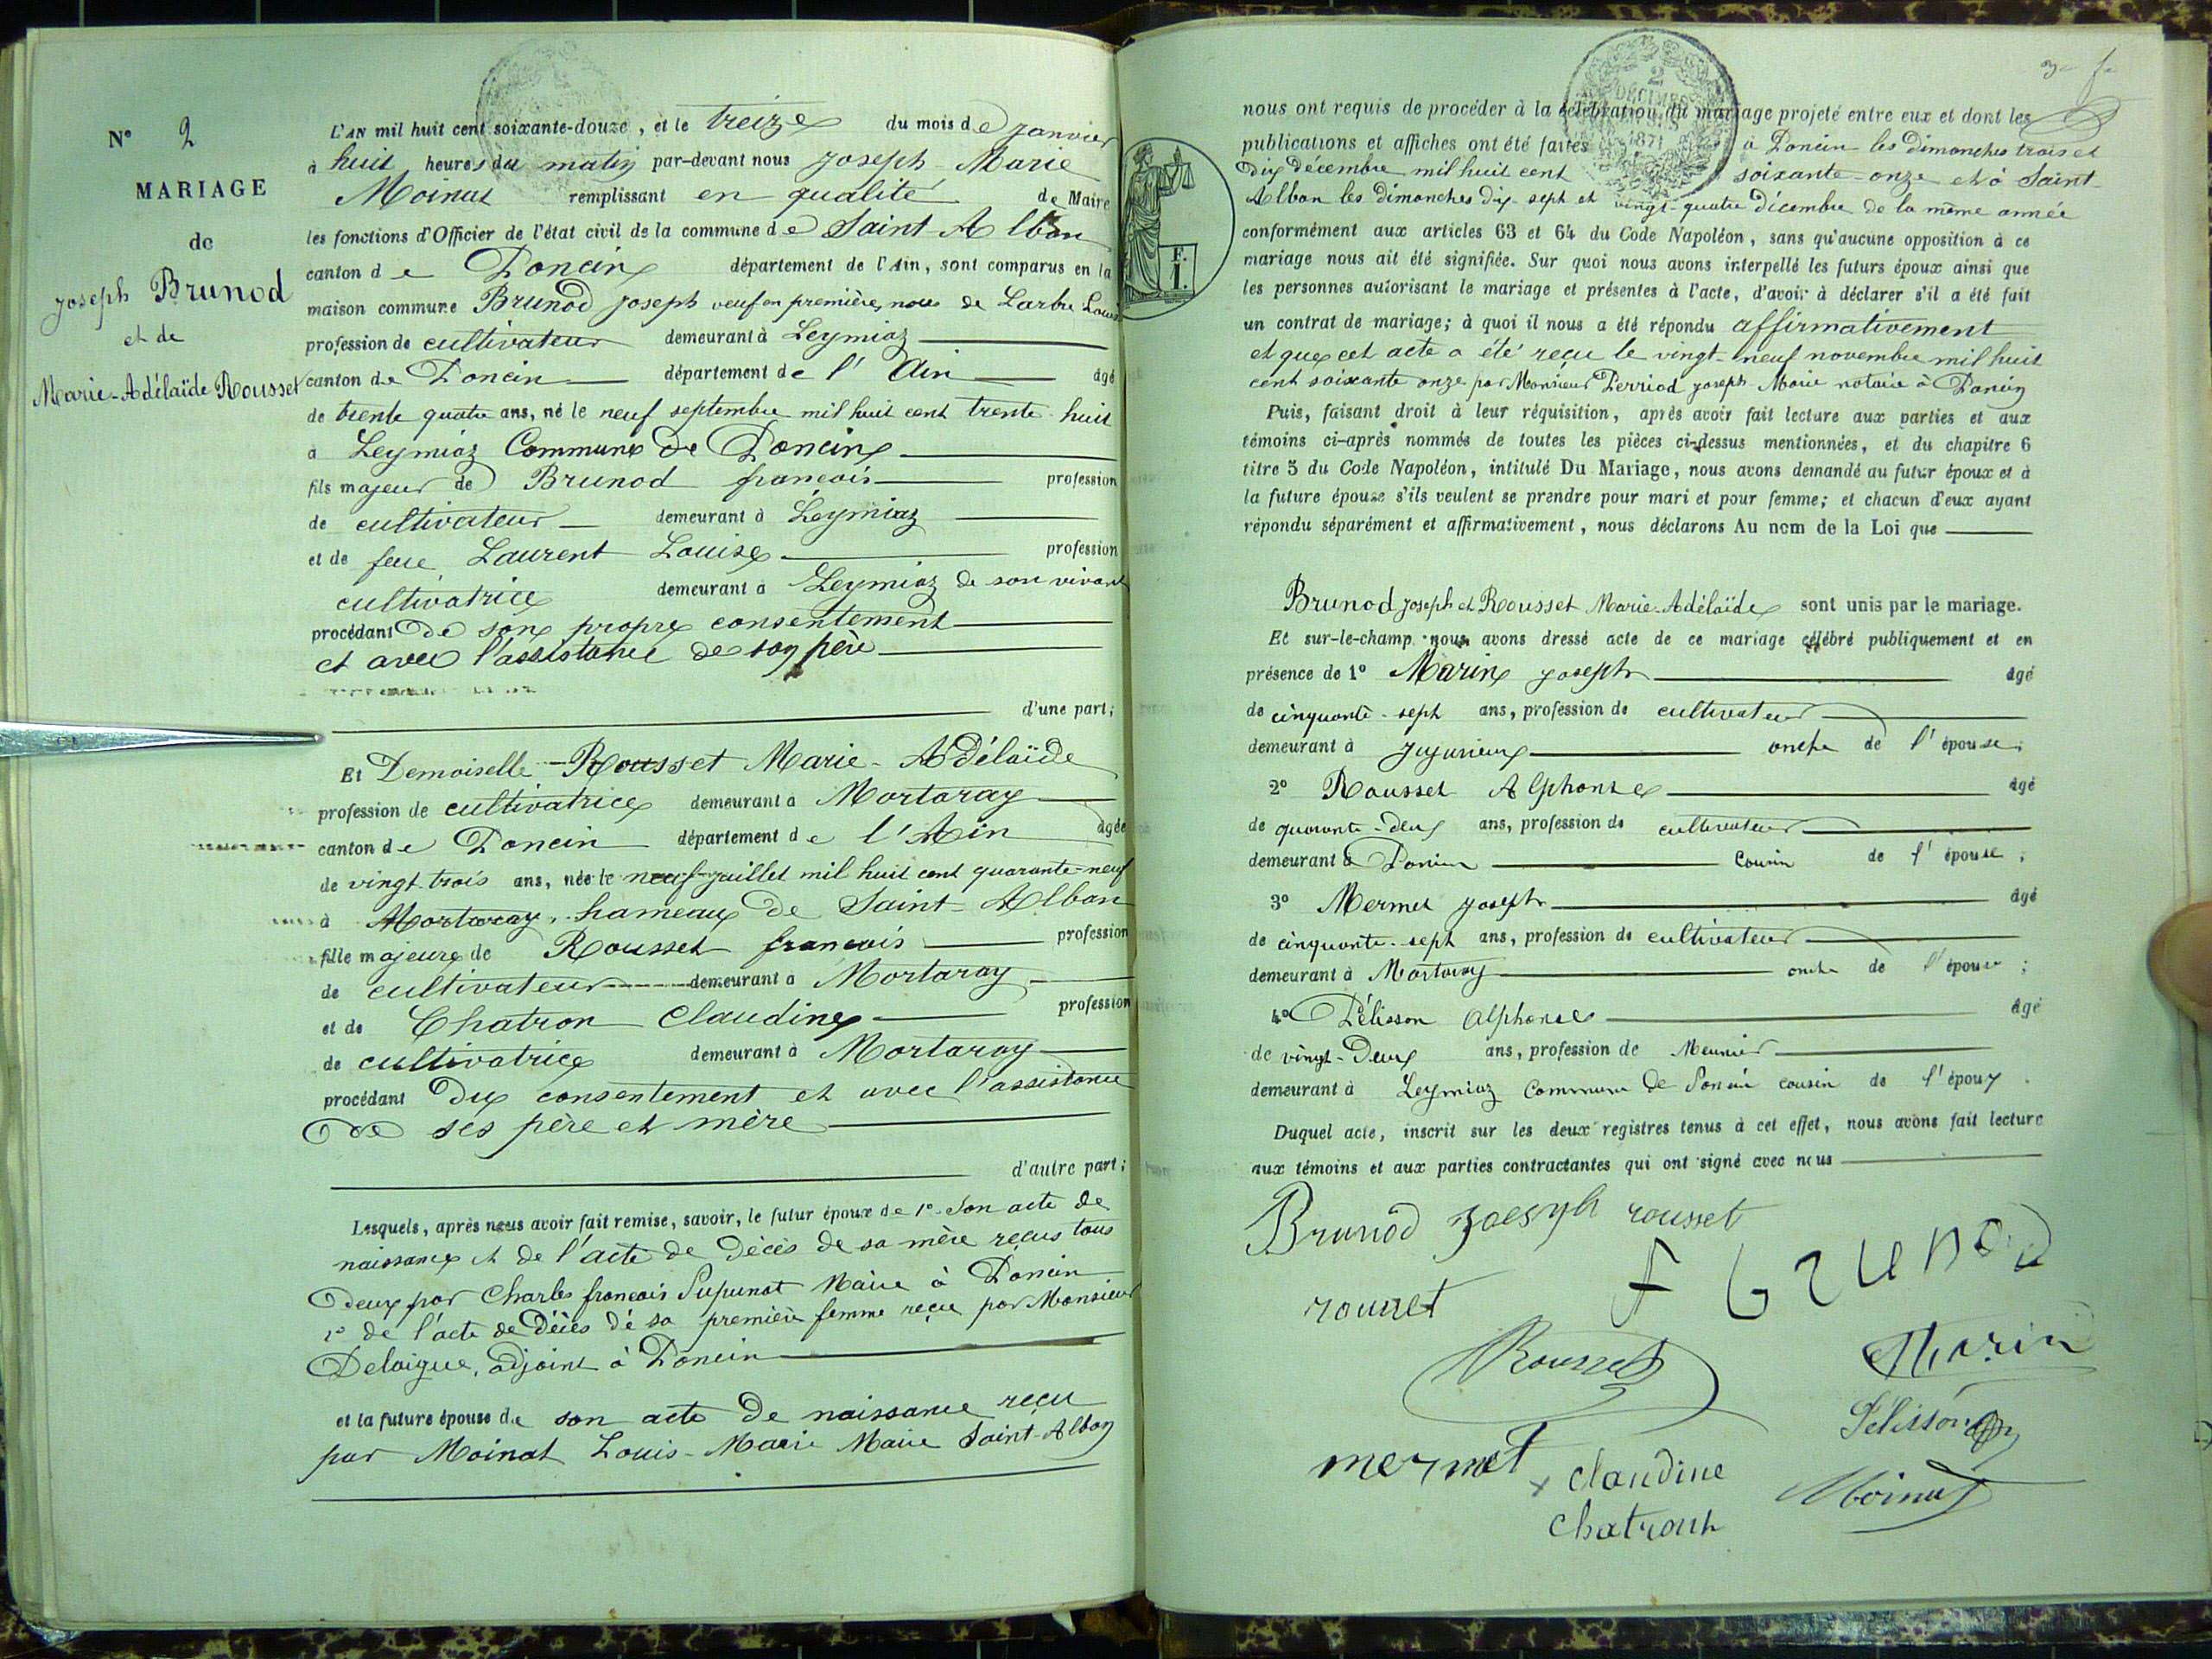 N° 2
MARIAGE
de
Joseph Brunod
et de
Marie-Adélaïde Rousset
L'AN mil huit cent soixante-douze, et le treize du mois de janvier
à huit heures du matin par-devant nous Joseph-Marie
Moinat remplissant en qualité de Maire
les fonctions d'Officier de l'état civil de la commune de Saint-Alban
canton de Poncin département de l'Ain, sont comparus en la
maison commune Brunod Joseph veuf en première noces de Larbe Louise
profession de cultivateur demeurant à Leymiaz
canton de Poncin département de l'Ain âgé
de trente quatre ans, né le neuf septembre mil huit cent trente huit
à Leymiaz Commune de Poncin
fils majeur de Brunod françois profession
de cultivateur demeurant à Leymiaz
et de feue Laurent Louise profession
cultivatrice demeurant à Leymiaz de son vivant
procédant de son propre consentement
et avec l'assistance de son père
d'une part;
Et Demoiselle Rousset Marie-Adélaïde
profession de cultivatrice demeurant à Mortaray
canton de Poncin département de l'Ain âgée
de vingt trois ans, née le neuf juillet mil huit cent quarante-neuf
à Mortaray, hameau de Saint-Alban
fille majeure de Rousset françois profession
de cultivateur demeurant à Mortaray
et de Chatron Claudine profession
de cultivatrice demeurant à Mortaray
procédant du consentement et avec l'assistance
de ses père et mère
d'autre part;
Lesquels, après nous avoir fait remise, savoir, le futur époux de 1° Son acte de
naissance et de l'acte de décès de sa mère reçus tous
deux par Charles françois Pupunat Maire à Poncin
2° de l'acte de décès de sa première femme reçu par Monsieur
Delaigue, adjoint à Poncin
et la future épouse de son acte de naissance reçu
par Moinat Louis-Marie Maire Saint-Alban
2
DÉCEMBRE
1871
F.
1.
nous ont requis de procéder à la célébration du mariage projeté entre eux et dont les
publications et affiches ont été faites à Poncin les dimanches trois et
dix décembre mil huit cent soixante-onze et à Saint-
Alban les dimanches dix-sept et vingt-quatre décembre de la même année
conformément aux articles 63 et 64 du Code Napoléon, sans qu'aucune opposition à ce
mariage nous ait été signifiée. Sur quoi nous avons interpellé les futurs époux ainsi que
les personnes autorisant le mariage et présentes à l'acte, d'avoir à déclarer s'il a été fait
un contrat de mariage; à quoi il nous a été répondu affirmativement
et que cet acte a été reçu le vingt-neuf novembre mil huit
cent soixante onze par Monsieur Perriod Joseph Marie notaire à Poncin
Puis, faisant droit à leur réquisition, après avoir fait lecture aux parties et aux
témoins ci-après nommés de toutes les pièces ci-dessus mentionnées, et du chapitre 6
titre 5 du Code Napoléon, intitulé Du Mariage, nous avons demandé au futur époux et à
la future épouse s'ils veulent se prendre pour mari et pour femme; et chacun d'eux ayant
répondu séparément et affirmativement, nous déclarons Au nom de la Loi que
Brunod Joseph et Rousset Marie-Adélaïde sont unis par le mariage.
Et sur-le-champ nous avons dressé acte de ce mariage célébré publiquement et en
présence de 1° Marin Joseph âgé
de cinquante-sept ans, profession de cultivateur
demeurant à Jujurieux oncle de l'épouse;
2° Rousset Alphonse âgé
de quarante-deux ans, profession de cultivateur
demeurant à Poncin Cousin de l'épouse;
3° Mermet Joseph âgé
de cinquante-sept ans, profession de cultivateur
demeurant à Mortaray oncle de l'épouse;
4° Pélisson Alphonse âgé
de vingt-Deux ans, profession de Meunier
demeurant à Leymiaz Commune de Poncin cousin de l'époux.
Duquel acte, inscrit sur les deux registres tenus à cet effet, nous avons fait lecture
aux témoins et aux parties contractantes qui ont signé avec nous
Brunod Joesph rousset
rousset f brunod
Rousset Marin
Pélisson
mermet x claudine Moinat
Chatront